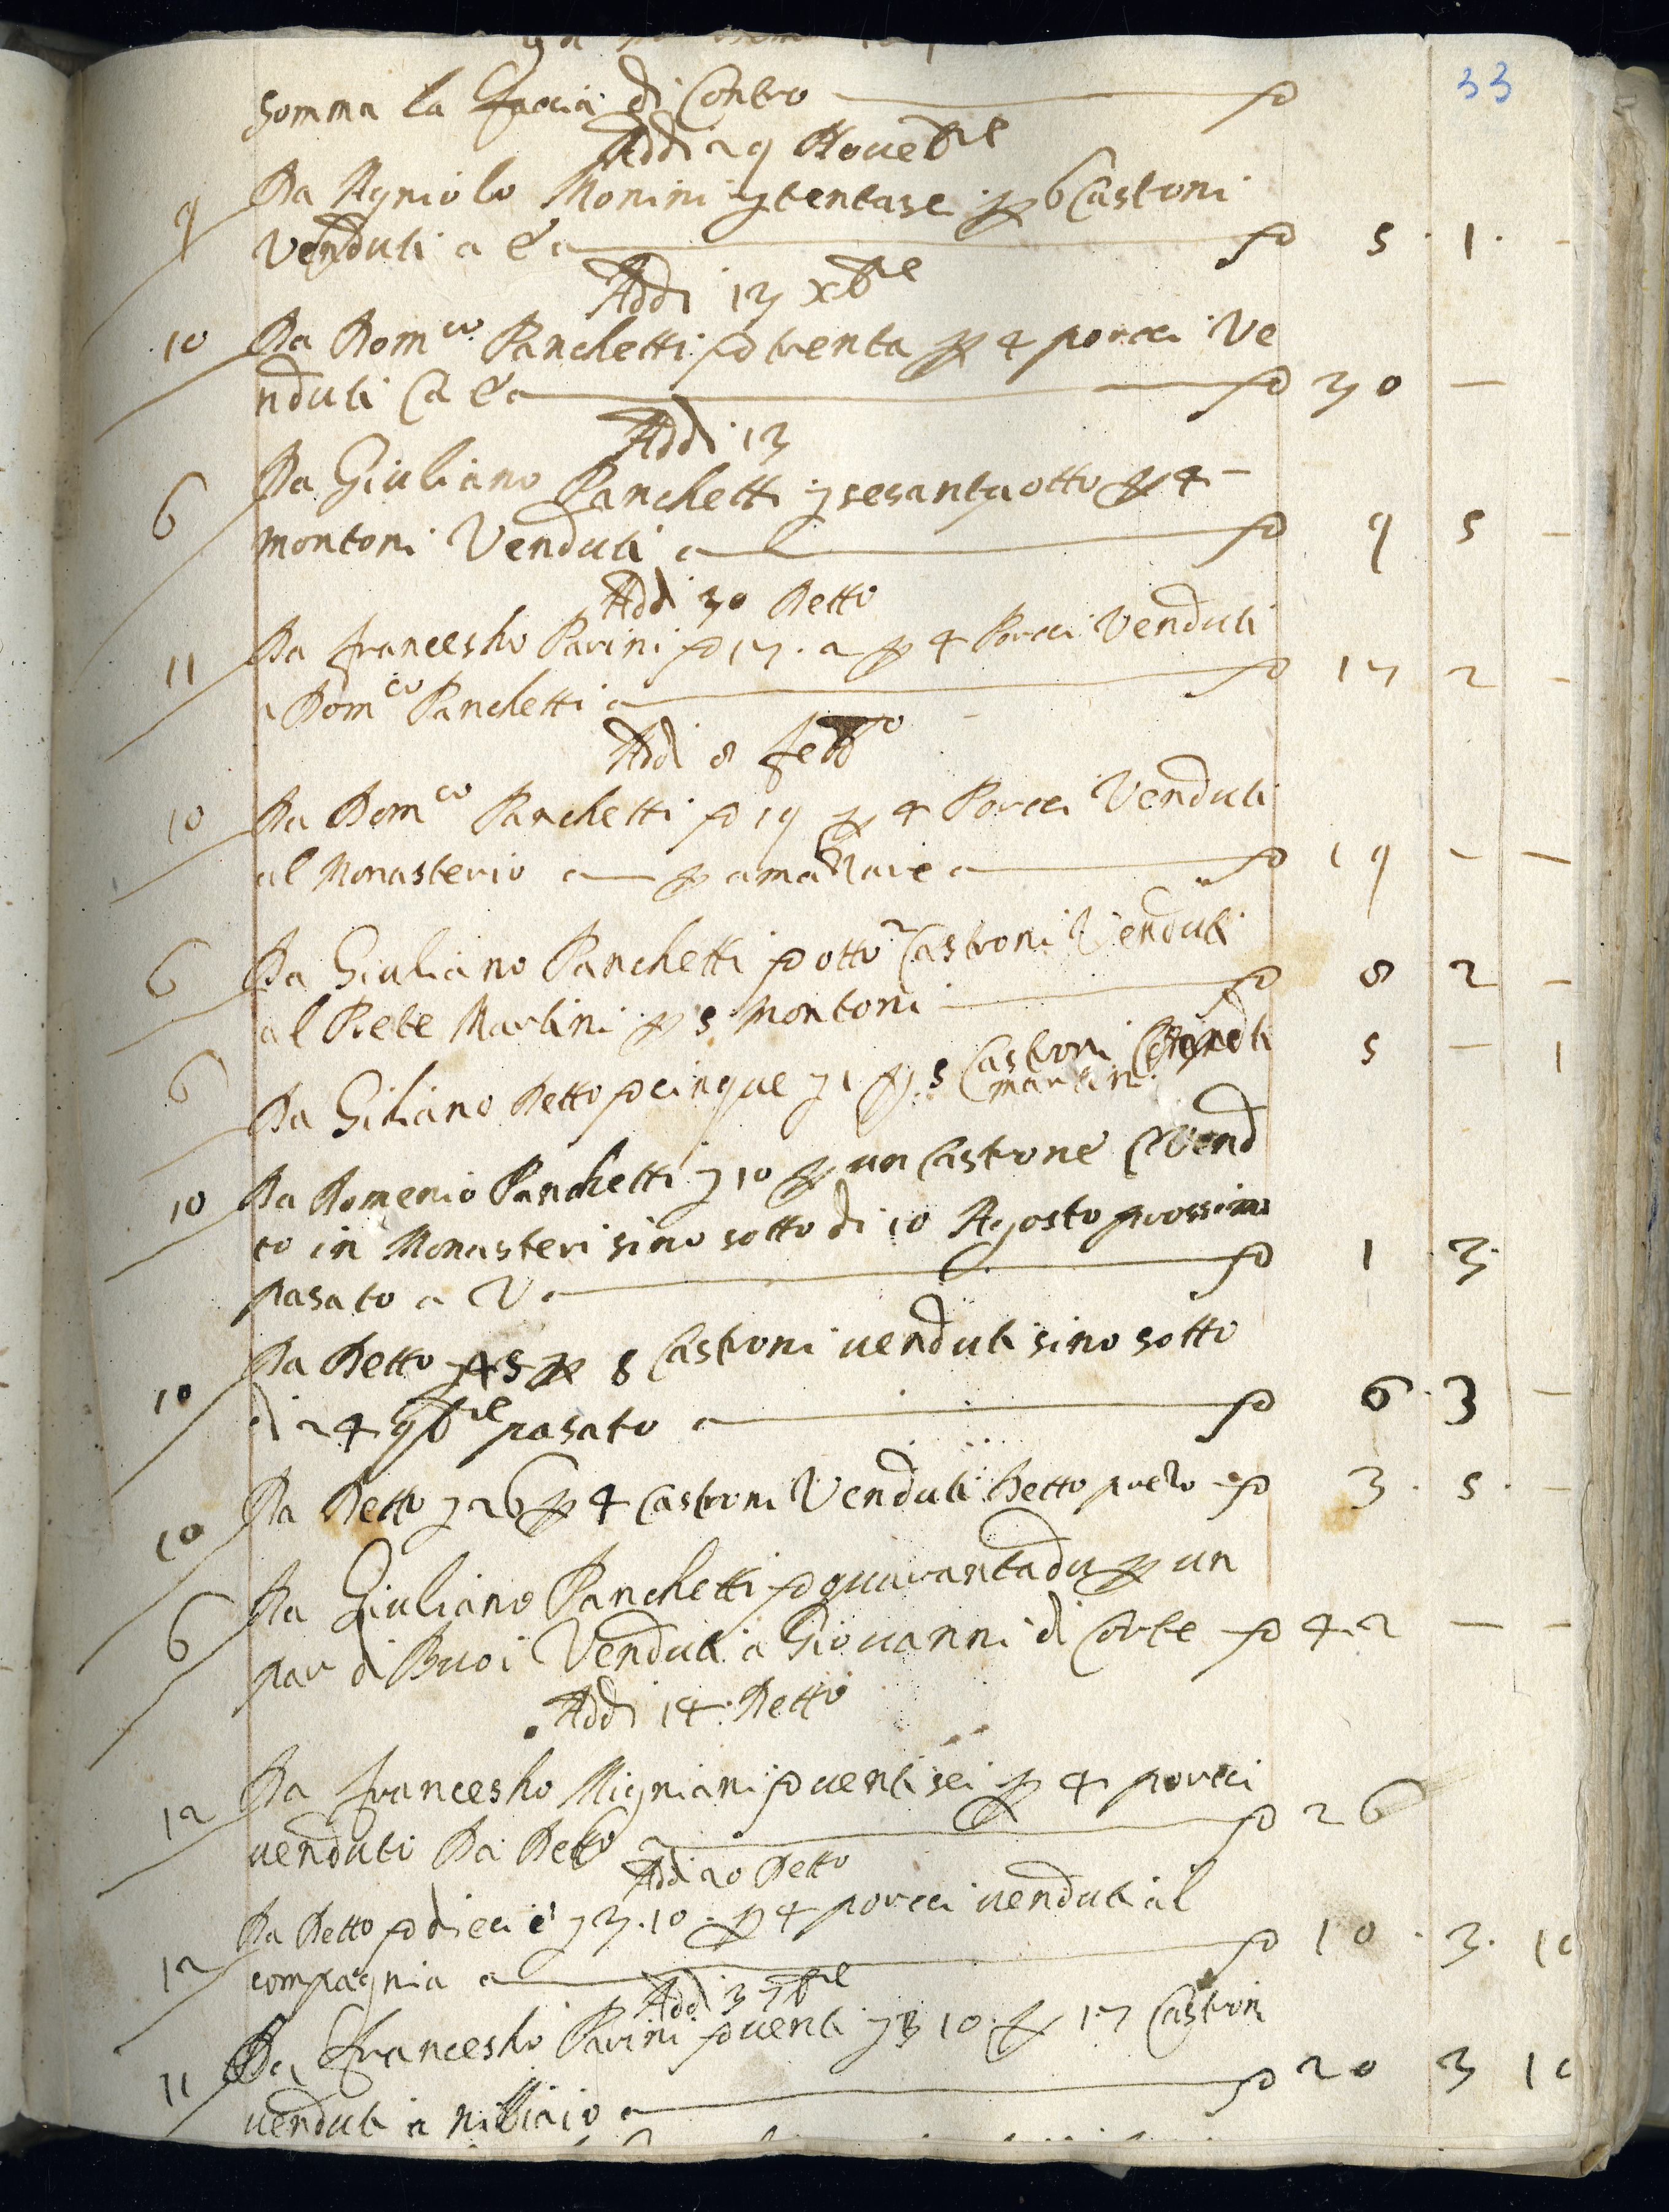 33
Somma la faccia di Contro — ∇
Addi 29 Noue͞bre
9 Da Agniolo Monini ɟ tentasei p 6 Castroni
Venduti a — ∇ 5 . 1 . -
Addi 13 xbre
10 Da Domco Panchetti ∇ trenta p 4 porcci Ve
nduti — ∇ 30 —
Addi 13
6 Da Giuliano Panchetti ɟ sesantaotto p 4 -
montoni Venduti — ∇ 9 5 -
Addi 30 Detto
11 Da francesko Parini ∇ 17 . 2 p 4 Porcci Venduti
a Domco Panchetti — ∇ 17 2 -
Addi 8 febbo
10 Da Domco Panchetti ∇ 19 p 4 Porcci Venduti
al Monasterio — p amazzare — ∇ 19 - -
6 Da Giuliano Panchetti ∇ otto 2 Castroni Venduti
al Prete Martini p 5 Montoni — ∇ 8 2 -
6 Da Giliano Detto ∇ cinque ɟ 1 p 5 Castroni martini 5 - 1
10 Da Domenio Panchetti ɟ 10 p un Castrone Vend
to in Monasteri sino sotto di 10 Agosto prossimo
pasato a — ∇ 1 . 3 .
10 Da Detto ɟ 45 p 8 Castroni uenduti sino sotto
di 24 9bre pasato — ∇ 6 . 3 -
10 Da Detto ɟ 26 p 4 Castroni Venduti Detto — ∇ 3 . 5 . -
6 Da Giuliano Panchetti ∇ quarantadu p un
par di Buoi Venduti a Giouanni di Corte — ∇ 42 — -
Addi 14 Detto
12 Da francesko Migniani ∇ uentisei p 4 porcci
uenduti Da Detto — ∇ 26
Addi 20 Detto
12 Da Detto ∇ dieci e ɟ 3 . 10 . p 4 porcci uenduti al
compagnia — ∇ 10 . 3 . 10
Addi 3 7bre
11 Da francesko Parini ∇ uenti ɟ 3 10 p 17 Castroni
uenduti a — ∇ 20 3 10